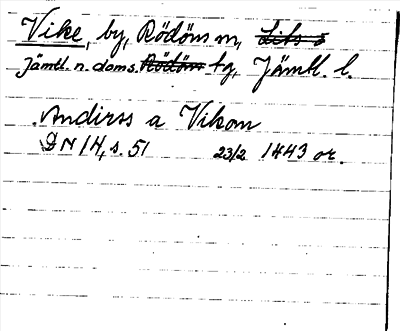 Vike, by, Rödöns sn, Lits s
Jämtl. n. doms. Rödöns tg, Jämtl. l.
Andirss a Vikom
DN 14, s. 51 23/2 1443 or.